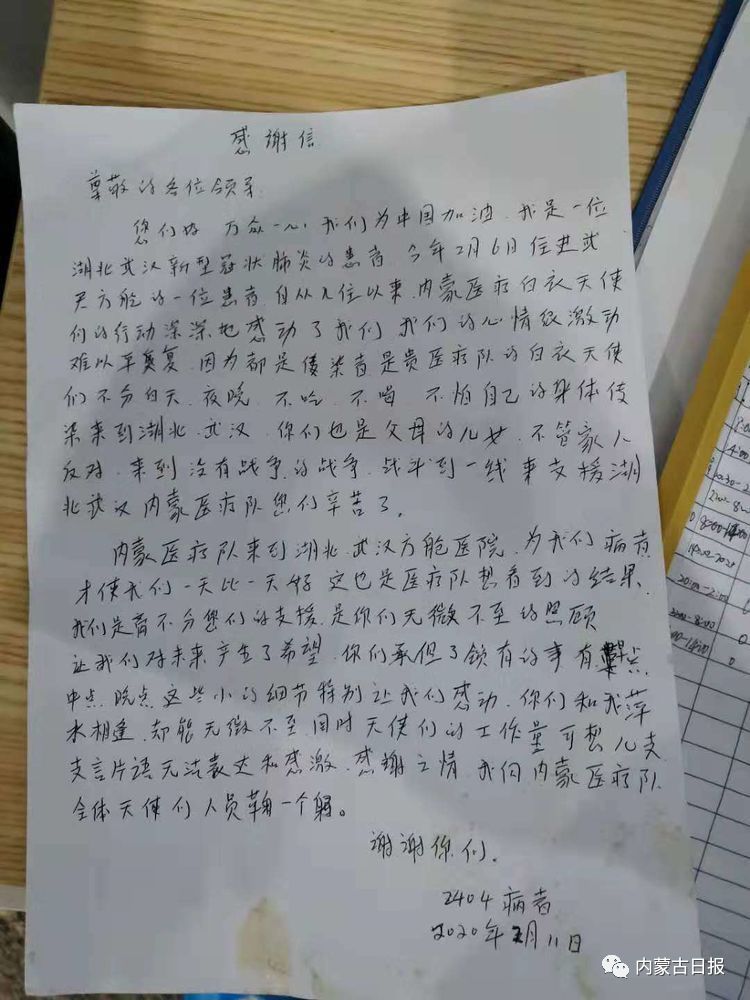 感谢信
尊敬的各位领导
您们好 万众一心 我们为中国加油 我是一位
湖北武汉新型冠状肺炎的患者 今年2月6日住进武
方舱的一位患者 自从入住以来 内蒙医疗白衣天使
们的行动深深地感动了我们 我们的心情级激动
难以平复 因为都是传染者是贵医疗队的白衣天使
们不分白天 夜晚 不吃 不喝 不怕自己的身体传
染来到湖北 武汉 你们也是父母的儿女 不管家人
反对 来到没有战争的战争 战斗到一线来支援湖
北武汉内蒙医疗队您们辛苦了。
内蒙医疗队来到湖北 武汉方舱医院 为我们病患
才使我们一天比一天好 这也是医疗队想看到的结果
我们是离不分您们的支援 是你们无微不至的照顾
让我们对未来产生了希望 你们承但了锁有的事 有早点
中点 晚点 这些小的细节特别让我们感动 你们和我萍
水相逢 却能无微不至 同时天使们的工作量可想儿支
支言片语无法表达和感激 感谢之情 我向内蒙医疗队
全体天使们人员鞠一个躬。
谢谢你们.
2404病者
2020年2月11日
4:00
20:00-2:00
0
0
内蒙古日报